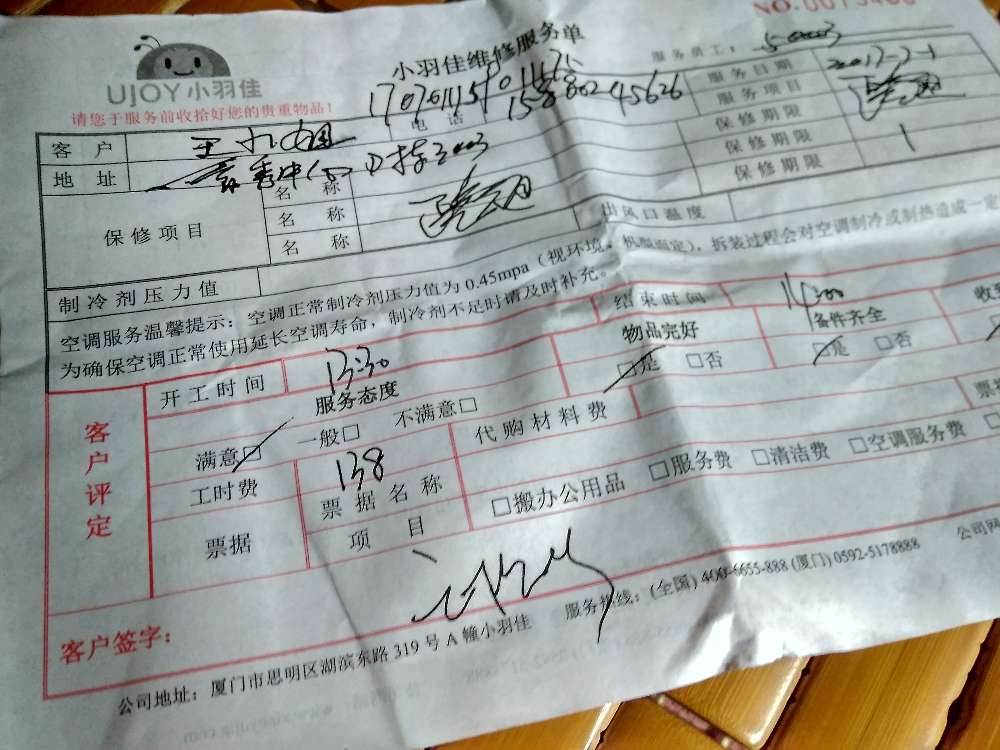 小羽佳维修服务单
UJOY小羽佳
请您于服务前收拾好您的贵重物品!
服务员工:
客户 电话 15880245626 服务日期 2017-7-1
地址 服务项目
保修项目 名称 保修期限
名称 保修期限 1
名称 保修期限
制冷剂压力值 出风口温度
空调服务温馨提示:空调正常制冷剂压力值为0.45mpa(视环境、机型而定),拆装过程会对空调制冷或制热造成一定
为确保空调正常使用延长空调寿命,制冷剂不足时请及时补充。
客户评定 开工时间 13:30 结束时间 14:00
服务态度 物品完好 备件齐全
满意□ 一般□ 不满意□ □是 □否 □是 □否
工时费 138 代购材料费
票据 票据名称 □搬办公用品 □服务费 □清洁费 □空调服务费
项目
客户签字:
公司地址:厦门市思明区湖滨东路319号A幢小羽佳 服务热线:(全国)400-6655-888 (厦门)0592-5178888